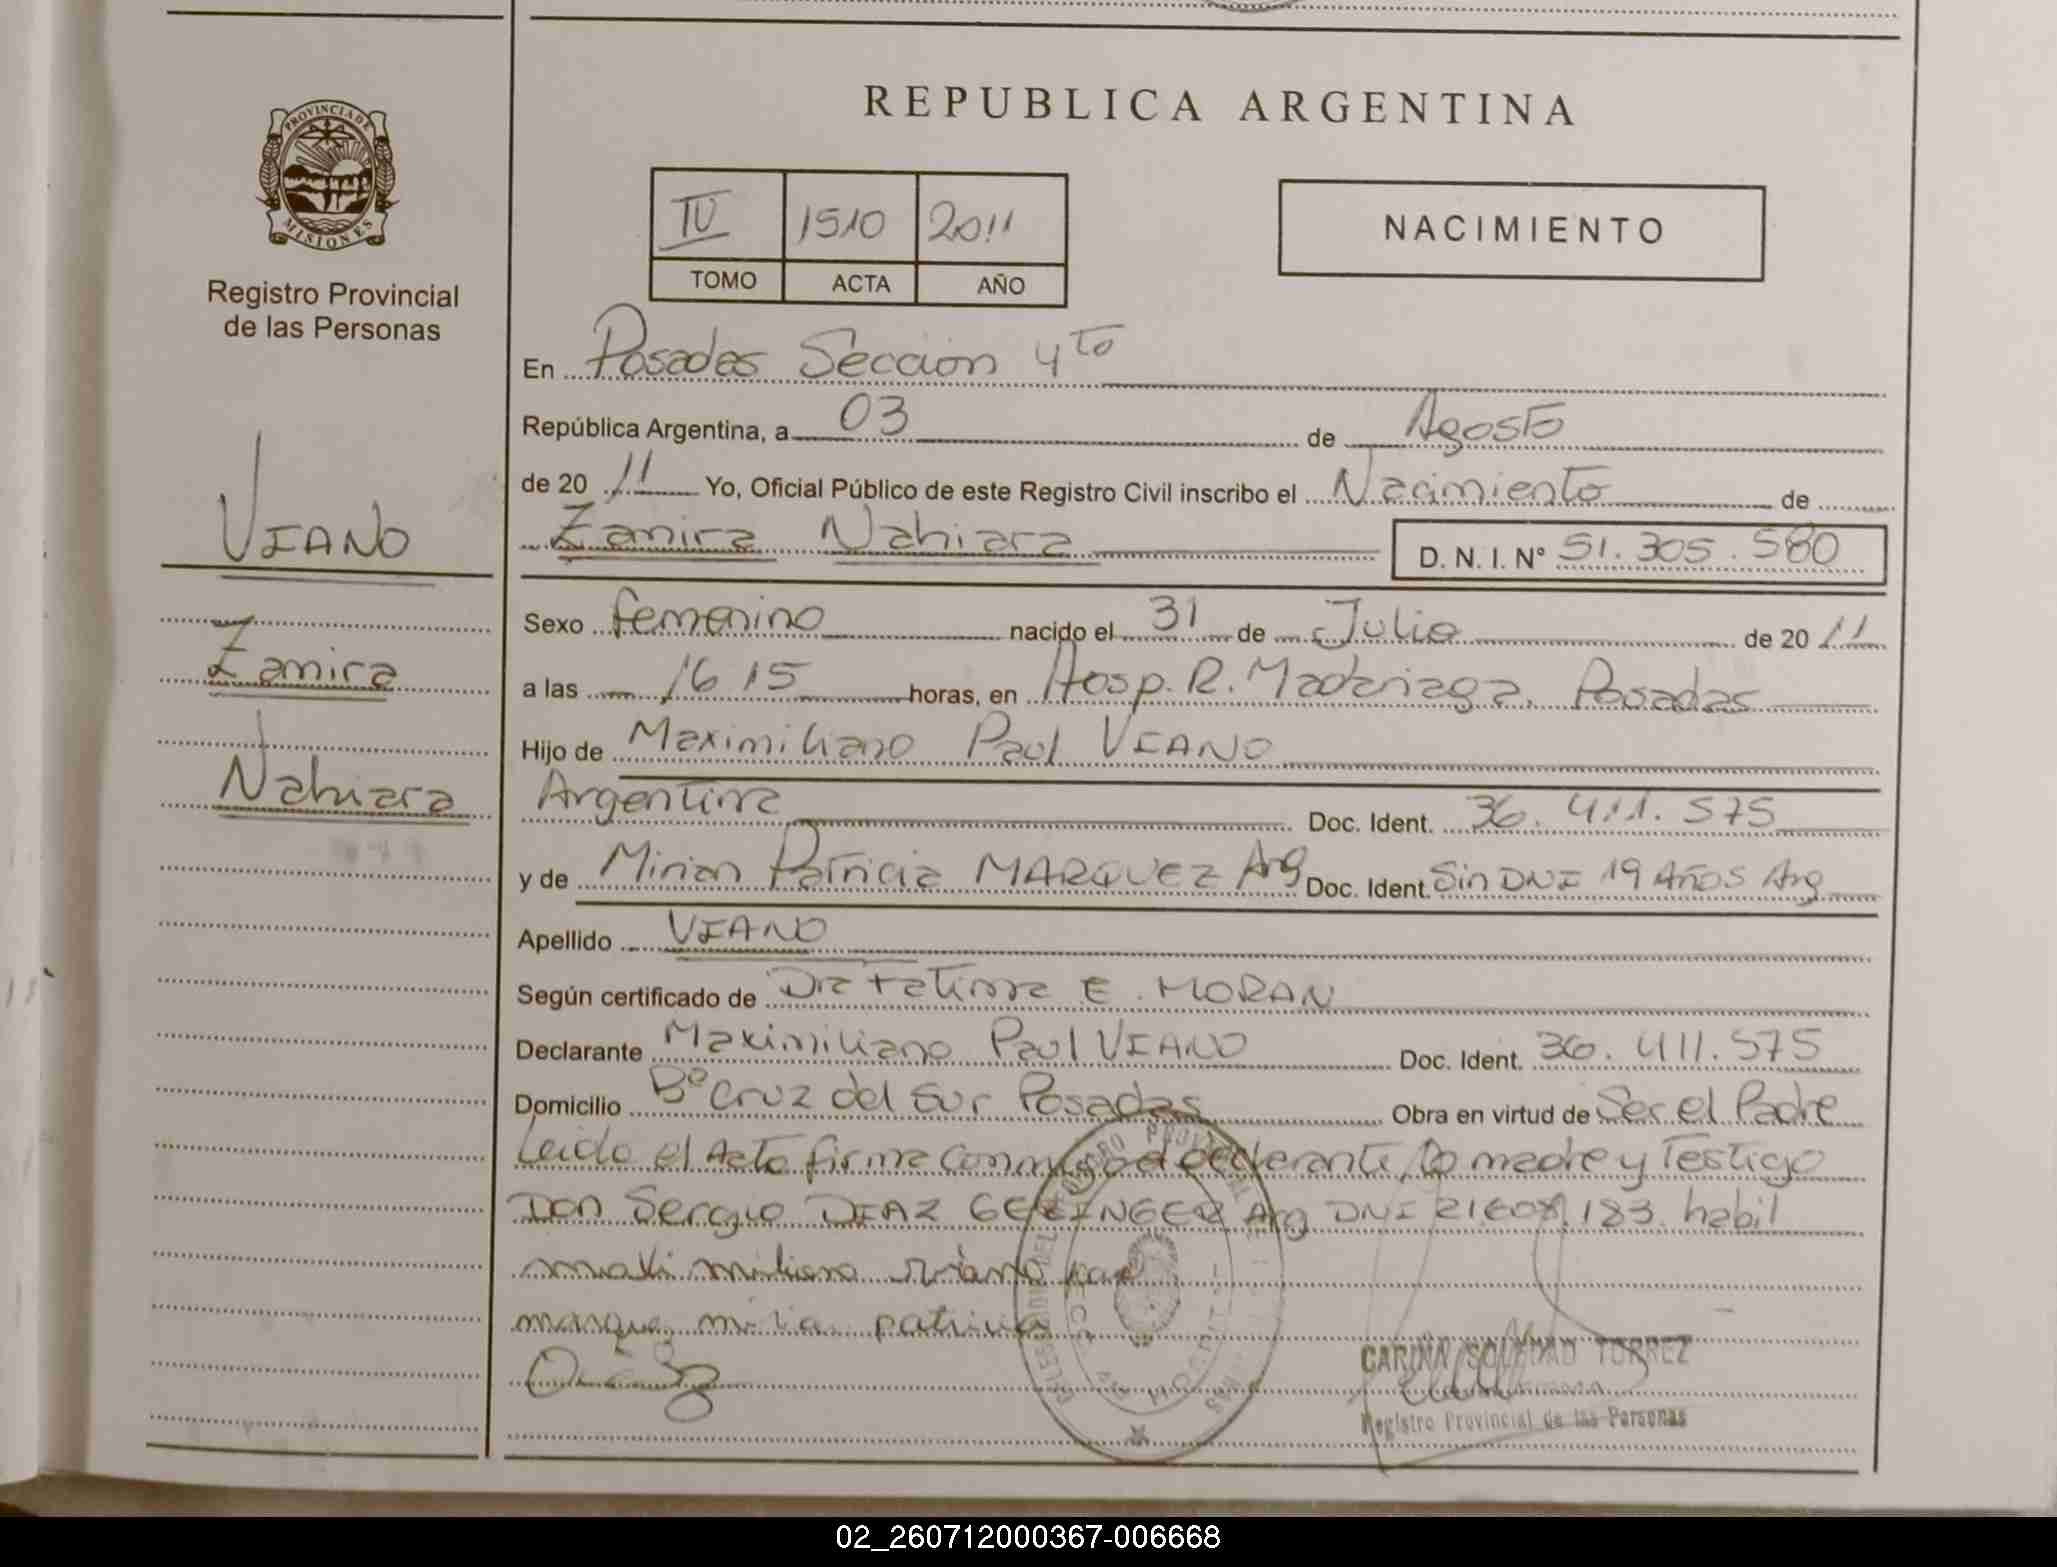 REPUBLICA ARGENTINA
PROVINCIA DE
MISIONES
Registro Provincial
de las Personas
IV 1510 2011
TOMO ACTA AÑO
NACIMIENTO
En Posadas Sección 4to
República Argentina, a 03 de Agosto
de 20 11 Yo, Oficial Público de este Registro Civil inscribo el Nacimiento de
Zamira Nahiara D. N. I. Nº 51.305.580
VIANO
Zamira
Nahiara
Sexo femenino nacido el 31 de Julio de 20 11
a las 16 15 horas, en Hosp. R. Madariaga, Posadas
Hijo de Maximiliano Paul VIANO
Argentina Doc. Ident. 36.411.575
y de Mirian Patricia MARQUEZ Arg Doc. Ident. Sin DNI 19 AÑOS Arg
Apellido VIANO
Según certificado de Dra Fatima E. MORAN
Declarante Maximiliano Paul VIANO Doc. Ident. 36.411.575
Domicilio Bº Cruz del Sur Posadas Obra en virtud de Ser el Padre
Leido el Acta firma conmigo el declarante, la madre y Testigo
Don Sergio DIAZ Arg DNI 21608.183 habil
maximiliano viano
marque patricia
CARINA SOLEDAD TORREZ
Registro Provincial de las Personas
02_260712000367-006668